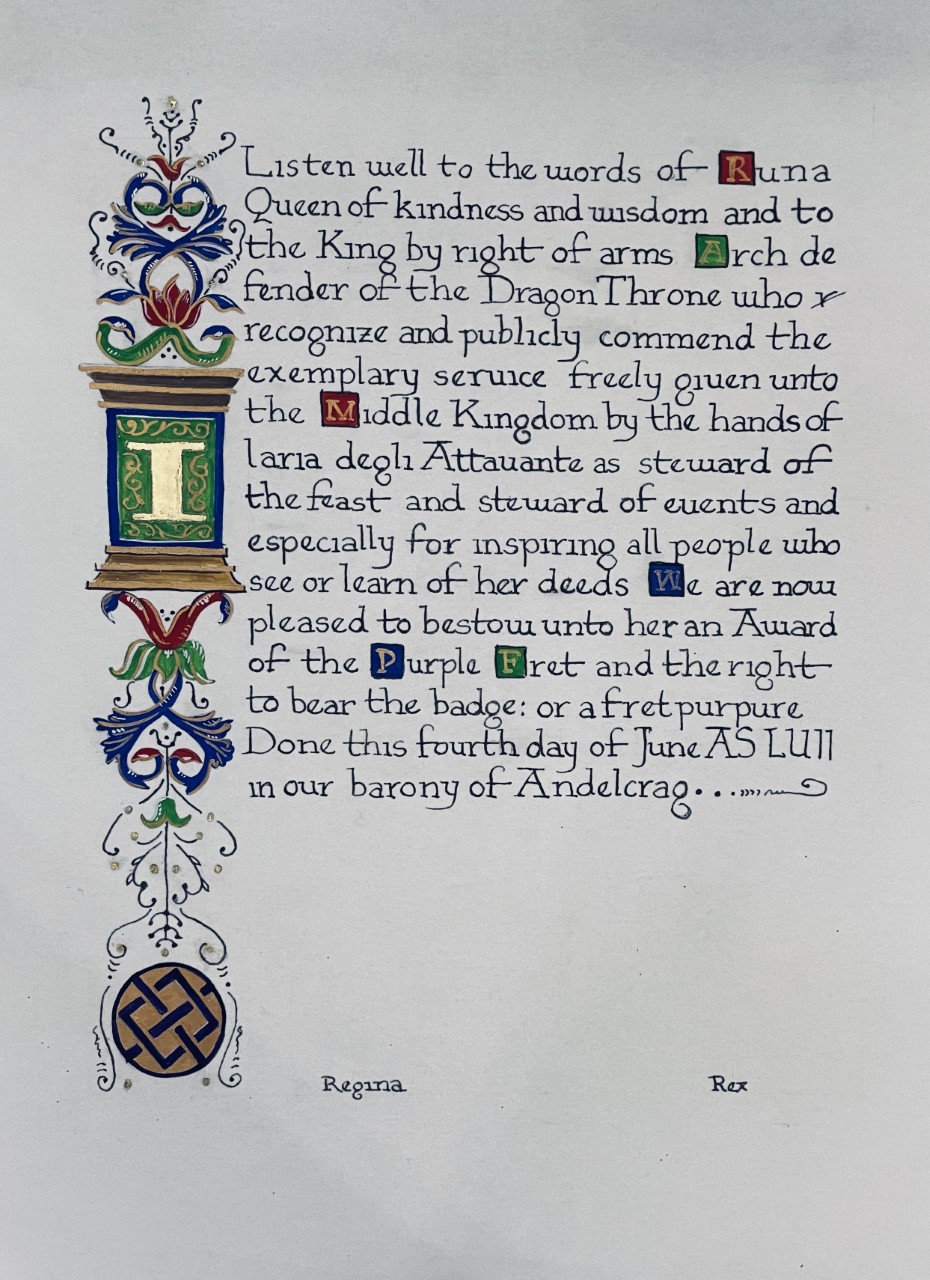 Listen well to the words of Runa
Queen of kindness and wisdom and to
the King by right of arms Arch de
fender of the Dragon Throne who r
recognize and publicly commend the
exemplary service freely given unto
the Middle Kingdom by the hands of
I laria degli Attavante as steward of
the feast and steward of events and
especially for inspiring all people who
see or learn of her deeds We are now
pleased to bestow unto her an Award
of the Purple Fret and the right
to bear the badge: or a fret purpure
Done this fourth day of June AS LVII
in our barony of Andelcrag...
Regina Rex